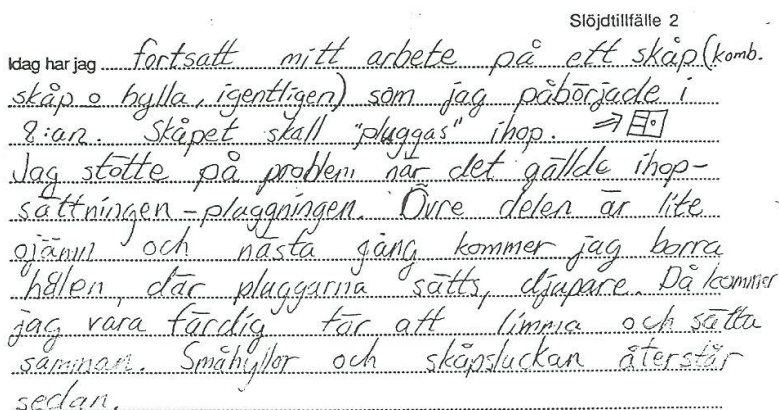 Slöjdtillfälle 2
Idag har jag fortsatt mitt arbete på ett skåp (komb.
skåp o hylla, igentligen) som jag påbörjade i
8:an. Skåpet skall "pluggas" ihop. ⇒
Jag stötte på problem när det gällde ihop-
sättningen - pluggningen. Övre delen är lite
ojämn och nästa gång kommer jag borra
hålen, där pluggarna sätts, djupare. Då kommer
jag vara färdig för att limma och sätta
samman. Småhyllor och skåpsluckan återstår
sedan.